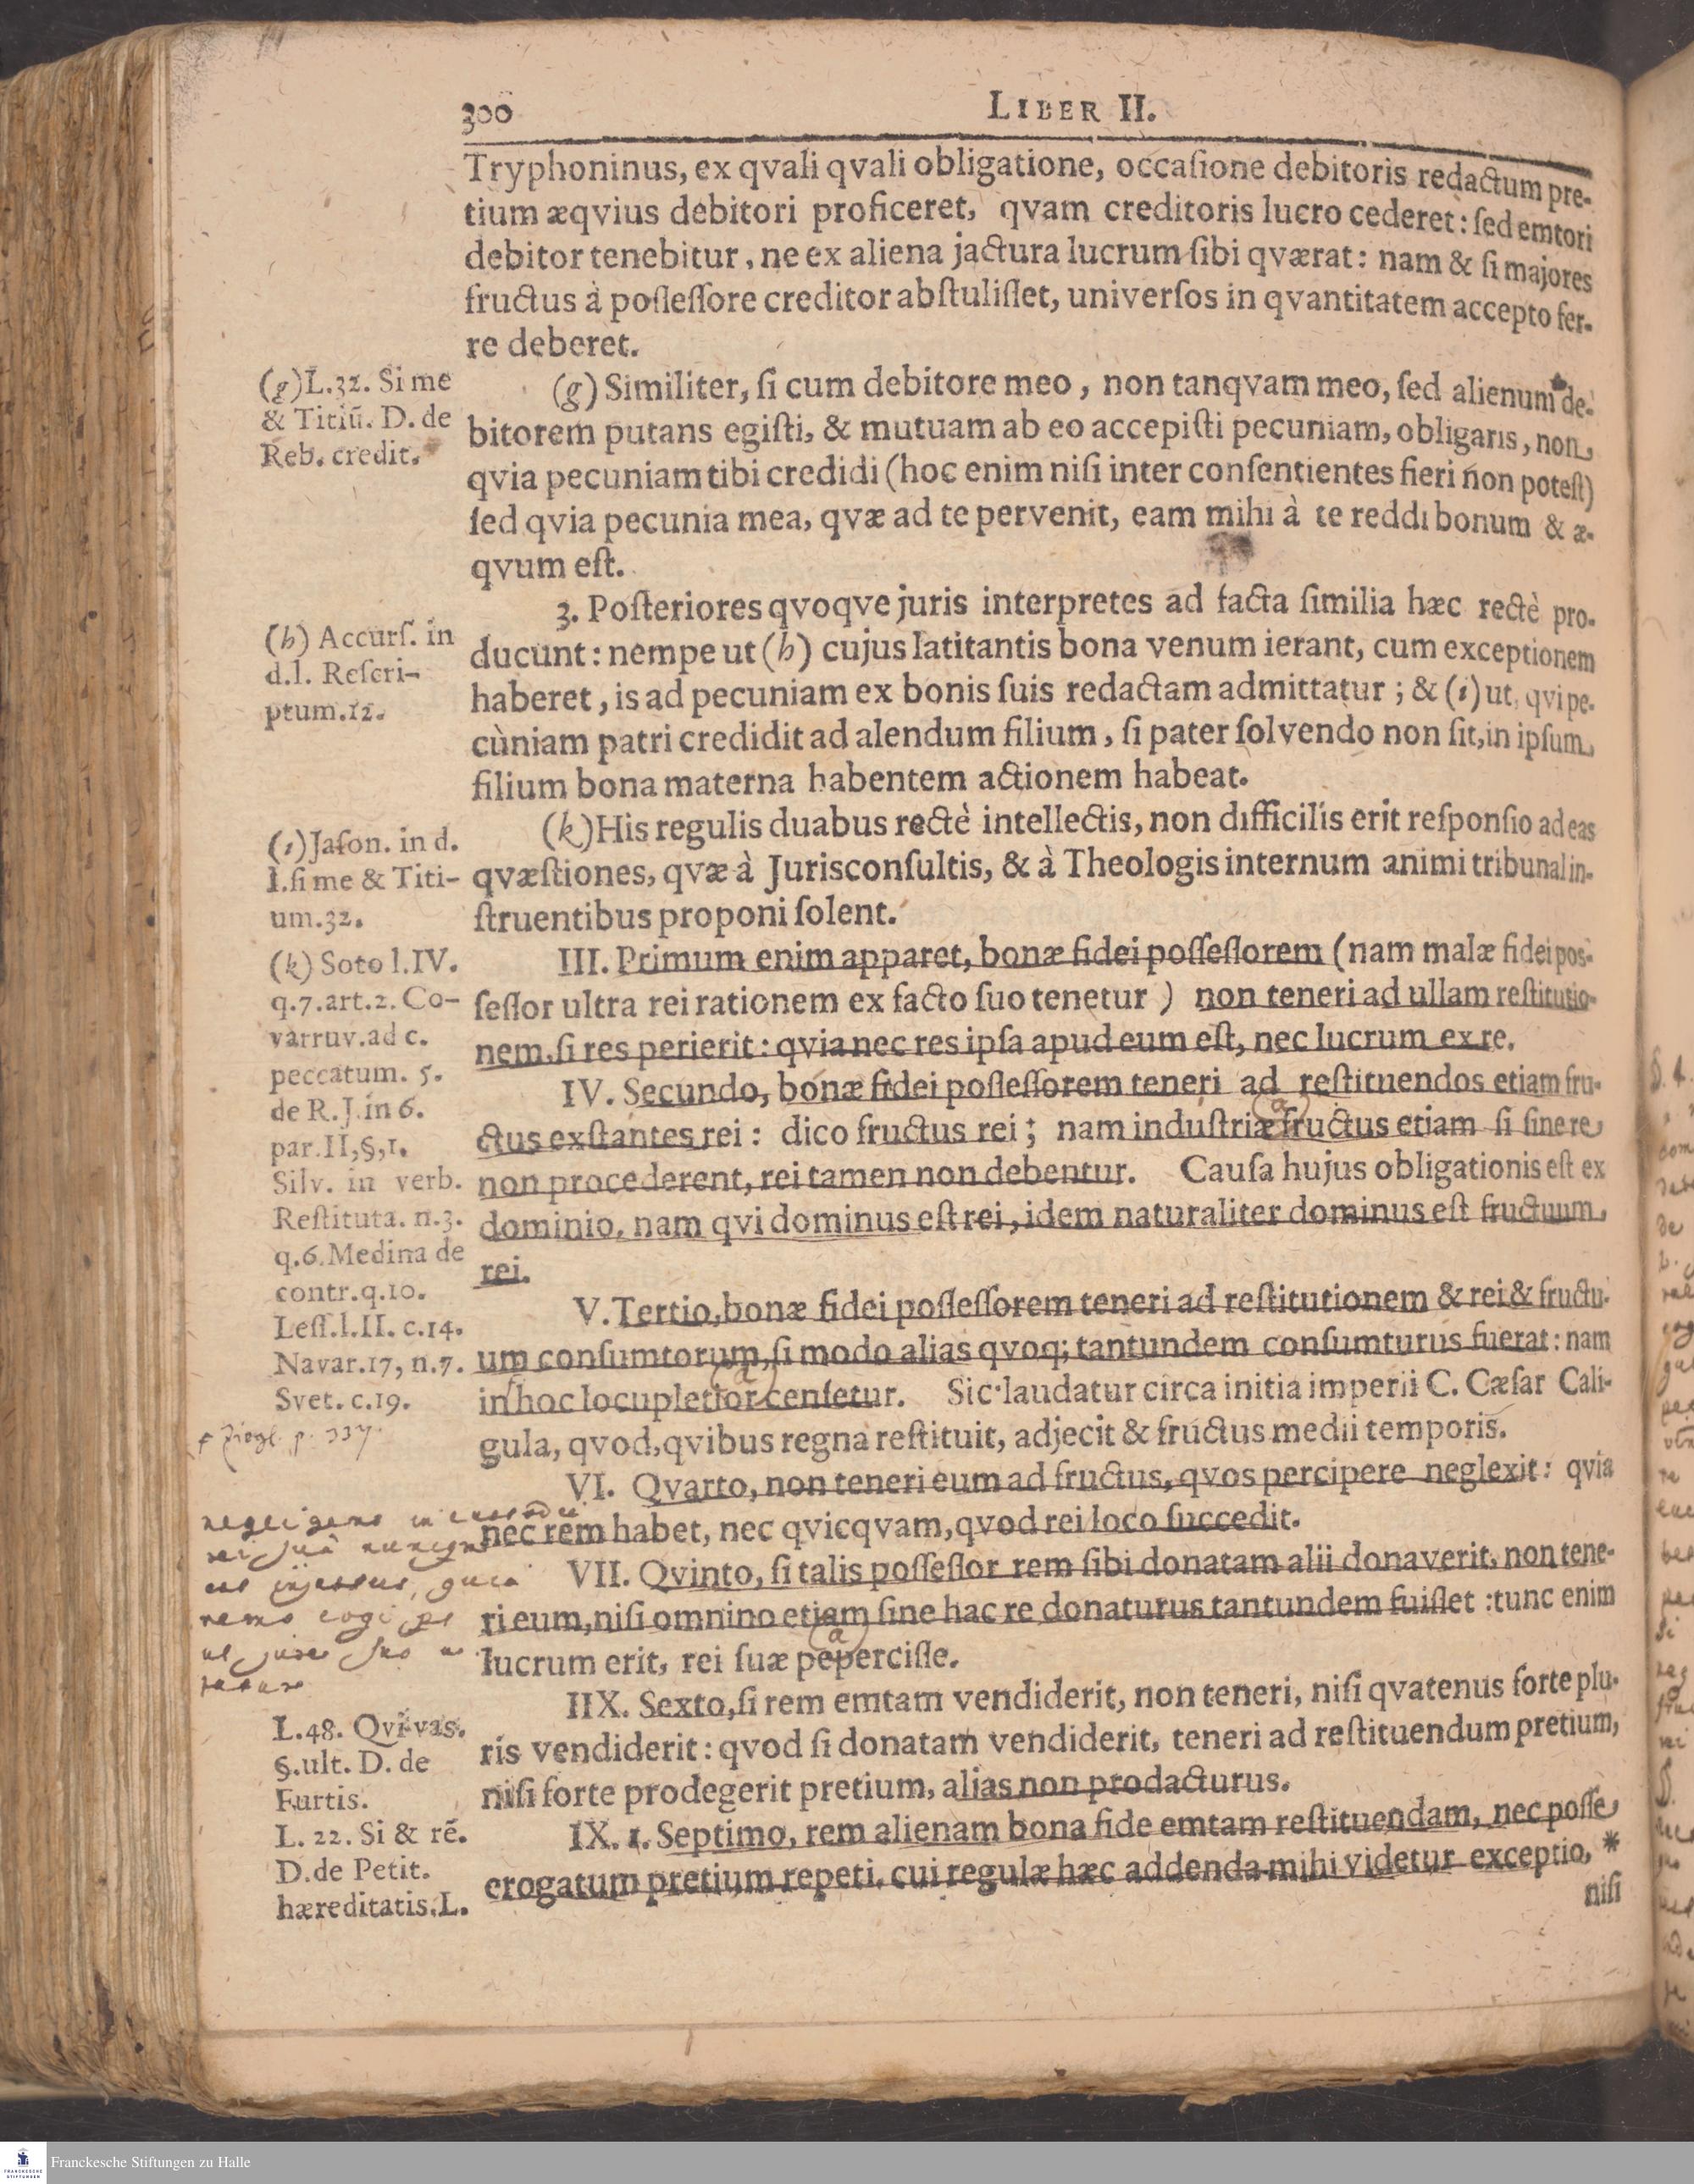 300
LIBER II.
Tryphoninus, ex qvali qvali obligatione, occaſione debitoris redactum pre-
tium æqvius debitori proficeret, qvam creditoris lucro cederet: ſed emtori
debitor tenebitur, ne ex aliena jactura lucrum ſibi qværat: nam & ſi majores
fructus à poſſeſſore creditor abſtuliſſet, univerſos in qvantitatem accepto fer-
re deberet.
(g) Similiter, ſi cum debitore meo, non tanqvam meo, ſed alienum de-
bitorem putans egiſti, & mutuam ab eo accepiſti pecuniam, obligaris, non
qvia pecuniam tibi credidi (hoc enim niſi inter conſentientes fieri non poteſt)
ſed qvia pecunia mea, qvæ ad te pervenit, eam mihi à te reddi bonum & æ-
qvum eſt.
3. Poſteriores qvoqve juris interpretes ad facta ſimilia hæc rectè pro-
ducunt: nempe ut (h) cujus latitantis bona venum ierant, cum exceptionem
haberet, is ad pecuniam ex bonis ſuis redactam admittatur; & (i) ut, qvi pe-
cùniam patri credidit ad alendum filium, ſi pater ſolvendo non ſit, in ipſum
filium bona materna habentem actionem habeat.
(k) His regulis duabus rectè intellectis, non difficilis erit reſponſio ad eas
qvæſtiones, qvæ à Jurisconſultis, & à Theologis internum animi tribunal in-
ſtruentibus proponi ſolent.
III. Primum enim apparet, bonæ fidei poſſeſſorem (nam malæ fidei pos-
ſeſſor ultra rei rationem ex facto ſuo tenetur) non teneri ad ullam reſtitutio-
nem, ſi res perierit: qvia nec res ipſa apud eum eſt, nec lucrum ex re.
IV. Secundo, bonæ fidei poſſeſſorem teneri ad reſtituendos etiam fru-
ctus exſtantes rei: dico fructus rei; nam induſtriæ fructus etiam ſi ſine re
(a)
non procederent, rei tamen non debentur. Cauſa hujus obligationis eſt ex
dominio, nam qvi dominus eſt rei, idem naturaliter dominus eſt fructuum
rei.
V. Tertio, bonæ fidei poſſeſſorem teneri ad reſtitutionem & rei & fructu-
um conſumtorum, ſi modo alias qvoq; tantundem conſumturus fuerat: nam
(a)
in hoc locupletior cenſetur. Sic laudatur circa initia imperii C. Cæſar Cali-
gula, qvod, qvibus regna reſtituit, adjecit & fructus medii temporis.
VI. Qvarto, non teneri eum ad fructus, qvos percipere neglexit: qvia
nec rem habet, nec qvicqvam, qvod rei loco ſuccedit.
VII. Qvinto, ſi talis poſſeſſor rem ſibi donatam alii donaverit, non tene-
ri eum, niſi omnino etiam ſine hac re donaturus tantundem fuiſſet: tunc enim
(a)
lucrum erit, rei ſuæ peperciſſe.
IIX. Sexto, ſi rem emtam vendiderit, non teneri, niſi qvatenus forte plu-
ris vendiderit: qvod ſi donatam vendiderit, teneri ad reſtituendum pretium,
niſi forte prodegerit pretium, alias non prodacturus.
IX. 1. Septimo, rem alienam bona fide emtam reſtituendam, nec poſſe
erogatum pretium repeti, cui regulæ hæc addenda mihi videtur exceptio, *
niſi
(g) L.32. Si me
& Titiũ. D. de
Reb. credit.
(h) Accurſ. in
d.l. Reſcri-
ptum.12.
(i) Jaſon. in d.
l. ſi me & Titi-
um.32.
(k) Soto l.IV.
q.7.art.2. Co-
varruv. ad c.
peccatum. 5.
de R.J. in 6.
par.II,§,1.
Silv. in verb.
Reſtituta. n.3.
q.6. Medina de
contr.q.10.
Leſſ.l.II. c.14.
Navar.17, n.7.
Svet. c.19.
Ziegl. p. 337.
negligens in
nemo cogi
L.48. Qvi vas.
§.ult. D. de
Furtis.
L. 22. Si & rẽ.
D. de Petit.
hæreditatis. L.
Franckesche Stiftungen zu Halle